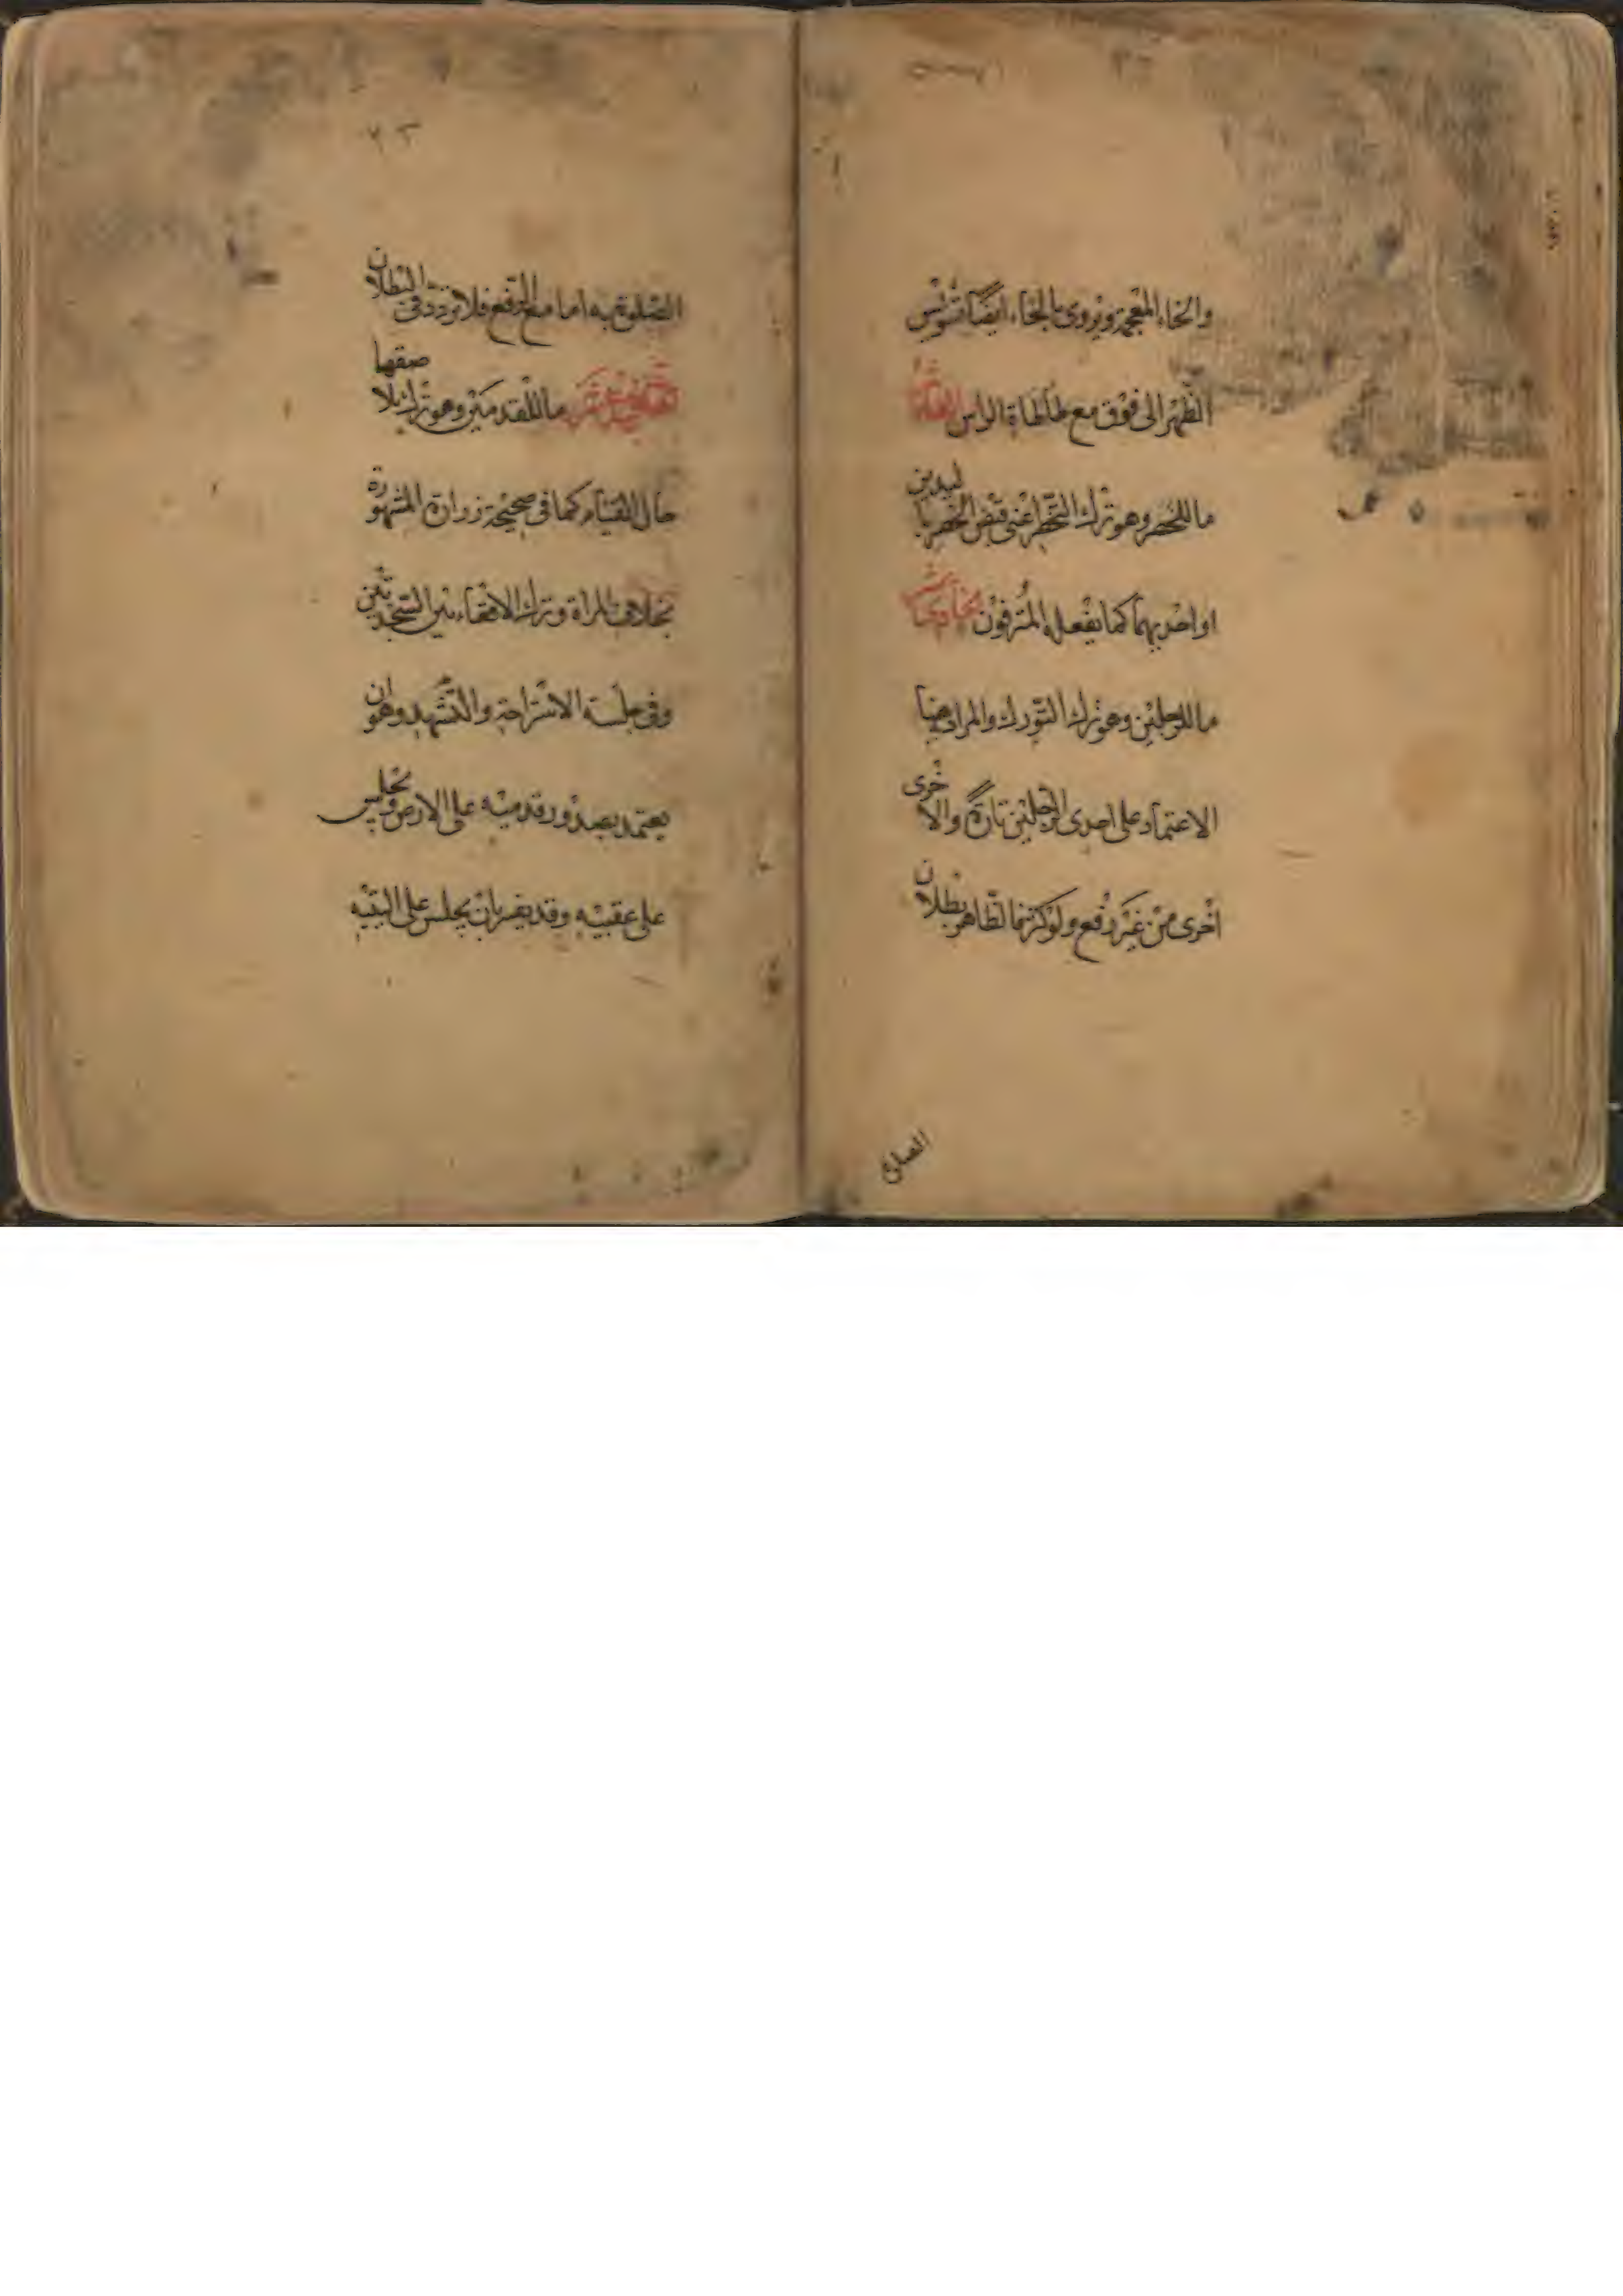 والخاء المعجمة ويروى بالخاء ايضا تقويس
الظهر الى فوق مع طأطأة الراس العاشر
ما للخصر وهو ترك التخصر اعنى قبض الخصر باليدين
او احديهما كما يفعله المترفون الحادى عشر
ما للرجلين وهو ترك التورك والمراد هنا
الاعتماد على احدى الرجلين تارة والاخرى
اخرى من غير رفع ولو كثر فالظاهر بطلان
الصلوة
الصلوة به اما مع الرفع فلا تردد فى البطلان
الثانى عشر ما للقدمين وهو ترك الاصقها
حال القيام كما فى صحيحة زرارة المشهورة
بخلاف المراة وترك الاقعاء بين السجدتين
وفى جلسة الاستراحة والتشهد وهو ان
يعتمد بصدور قدميه على الارض ويجلس
على عقبيه وقد يفسر بان يجلس على اليتيه